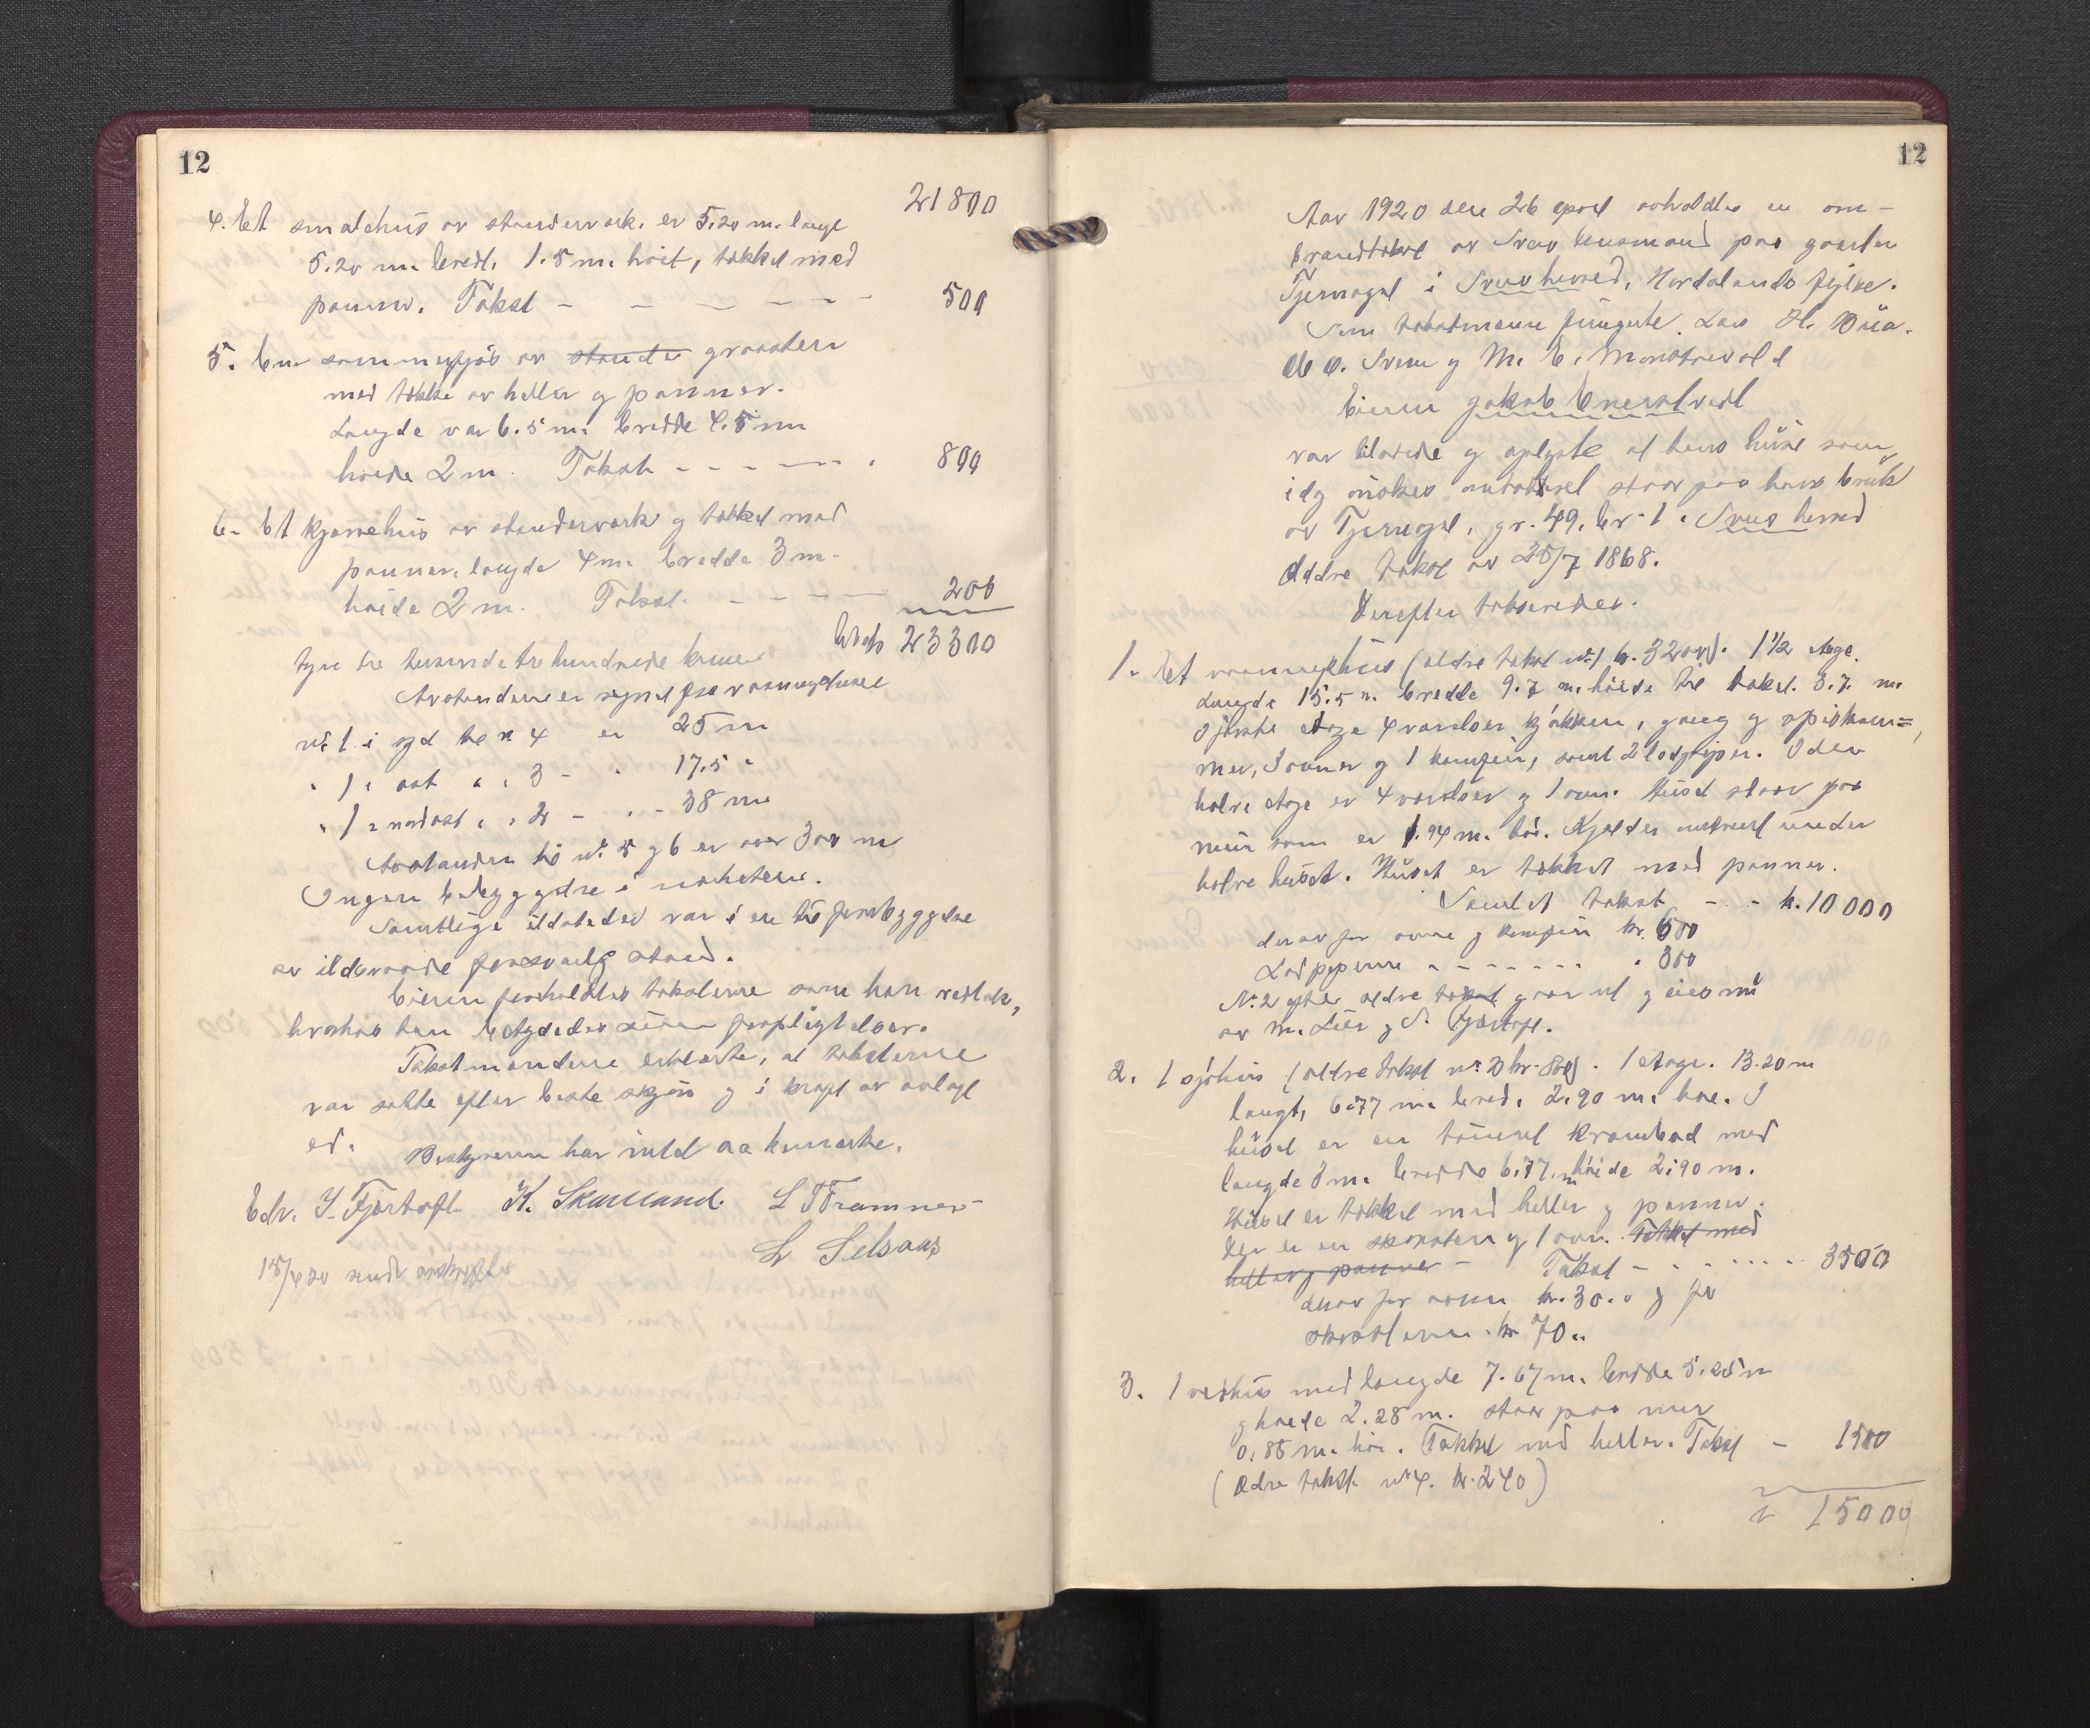 12
21800
4. Et smalehus av standerverk. er 5.20 m. langt
5.20 m. bredt. 1.5 m. høit, tækket med
panner. Takst - - - - - - 500
5. En sommerfjøs av stander graasten
med tække av heller og panner.
Længde var 6.5 m. bredde 4.5 m
høide 2 m. Takst - - - - - 800
6. Et kjørrehus av standerverk og tækket med
panner. længde 4 m. bredde 3 m.
høide 2 m. Takst. - - - - - 200
23300
tyve tre tusinde tre hundrede kroner
Avstandene er regnet fra vaaningshuset
nr. 1 i syd til nr 4 er 25 m
" 1 " øst " " 3 - " 17.5 "
" 1 " nordost " " 2 - " - 38 m
Avstanden til nr. 5 og 6 er over 300 m
Ingen bebyggelse i nærheten.
Samtlige ildsteder var i en til forebyggelse
av ildsvaade forsvarlig stand.
Eieren forholdtes taksterne som han vedtok,
hvorhos han betydedes sine forpligtelser.
Takstmændene erklærte, at taksterne
var satte efter beste skjøn og i kraft av avlagt
ed.
Bestyreren har intet aa bemerke.
Edv. J. Fjørtoft K. Skulland. L T Framnes
L Selsaas
15/4 20 sendt avskrifter
12
Aar 1920 den 26 april avholdtes en om-
brandtakst av Sveio lensmand paa gaarden
Tjernagel i Sveio herred, Hordalands fylke.
Som takstmænn fungerte Lars H. Bua.
og M. E. Monstrevold
Eieren Jakob Enerstvedt
var tilstede og oplyste at hans huse som
idag ønskes omtaksert staar paa hans bruk
av Tjernagel, gr. 49, br. 1 i Sveio herred
Ældre takst av 25/7 1868.
Derefter takseredes.
1. Et vaaningshus (ældre takst nr 1 kr. 3200). 1 1/2 etage.
Længde 15.5 m. bredde 9.7 m. høide til taket. 3.7. m.
I første etage 4 værelser kjøkken, gang og spiskam=
mer, 3 ovner og 1 komfur, samt 2 lodpiper. I den
halve etage er 4 værelser og 1 ovn. Huset staar paa
mur som er 1.94 m. høi. Kjelder under
halve huset. Huset er tækket med panner.
Samlet takst - - kr. 10 000
derav for ovne og komfur kr. 600
Lodpiperne - - - - - - " 300
Nr. 2 efter ældre takst gaar ut og eies nu
av M. Lier og S. Fjørtoft.
2. 1 sjøhus (ældre takst nr 3 kr. 800). 1 etage. 13.20 m
langt, 6.77 m. bred. 2.90 m. høi. I
huset er en tømret krambod med
længde 3 m. bredde 6.77 m høide 2.90 m.
Huset er tækket med heller og panner.
Der er en skorsten og 1 ovn. Tækket med
heller og panner - Takst - - - - - 3500
derav for ovnen kr. 30.0 og for
skorstenen kr 70..
3. 1 vedhus med længde 7.67 m. bredde 5.25 m
og høide 2.28 m. staar paa mur
0.85 m. høi. Tækket med heller. Takst - 1500
(Ældre takst nr 4. kr. 240)
15000